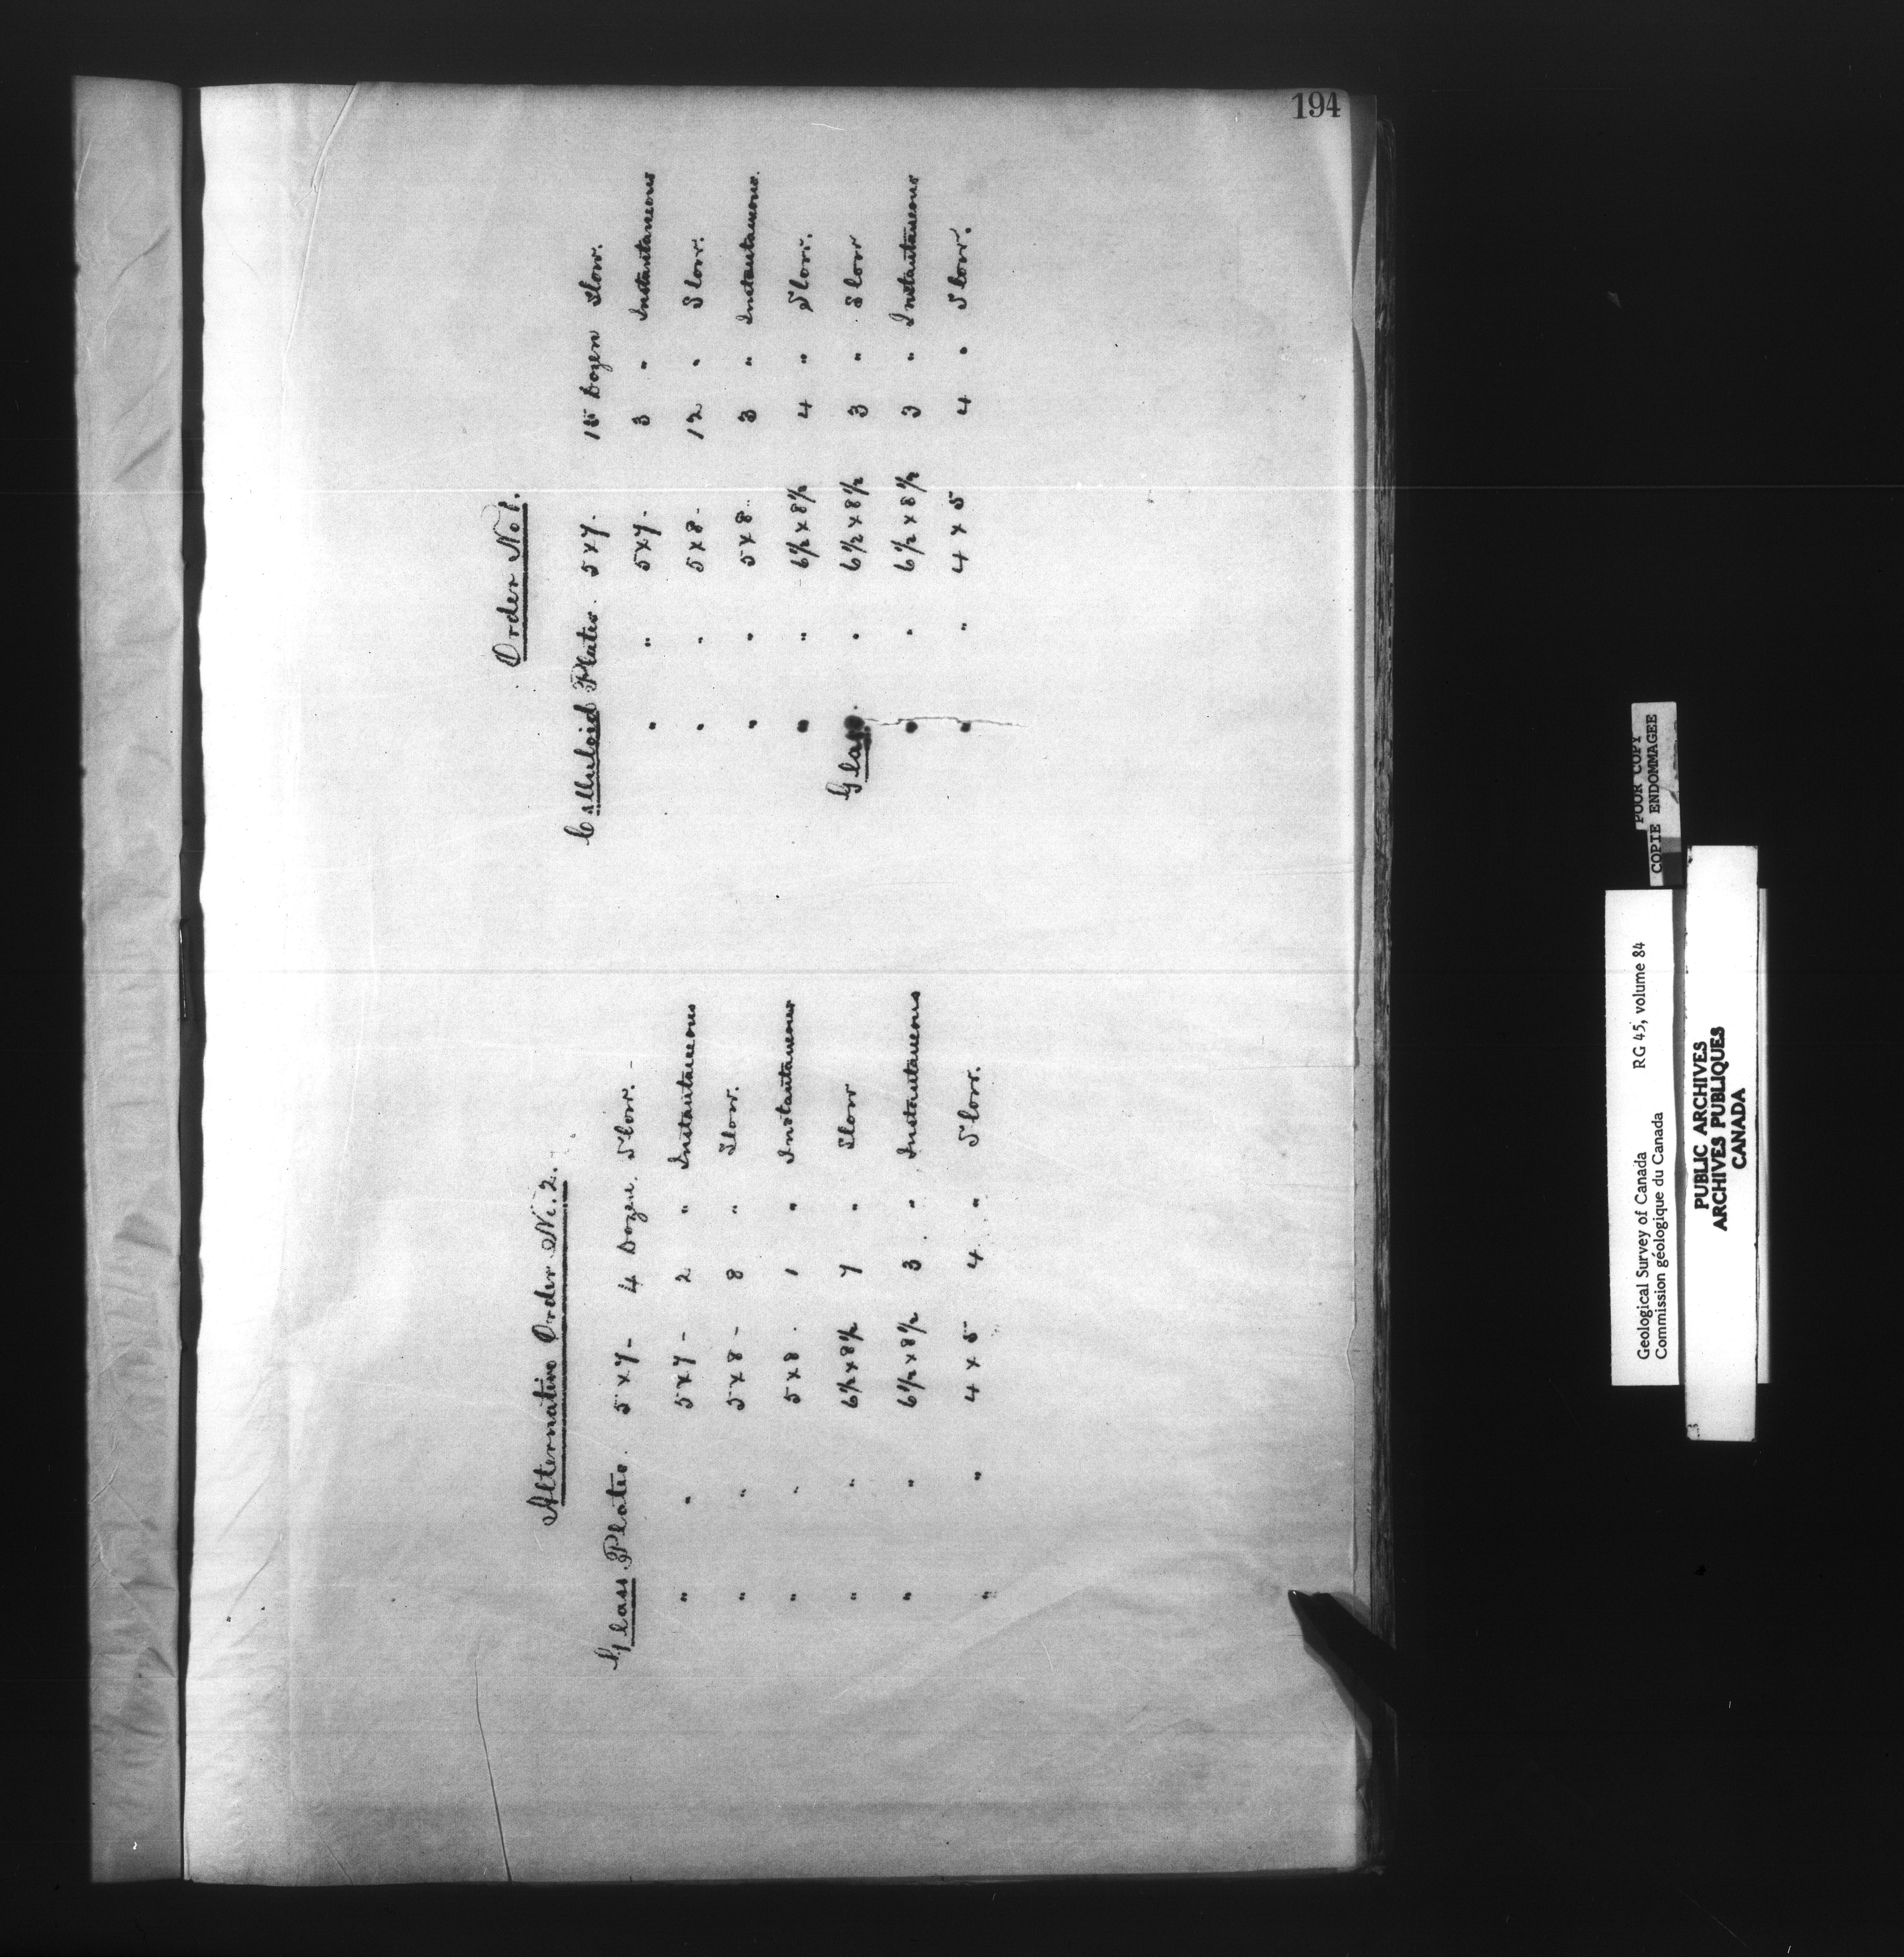 194
Order No 1.
Celluloid Plates. 5 x 7. 15 Dozen Slow.
" " 5 x 7. 3 " Instantaneous
" " 5 x 8. 12 " Slow.
" " 5 x 8. 3 " Instantaneous.
" " 6 1/2 x 8 1/2 4 " Slow.
Glass " 6 1/2 x 8 1/2 3 " Slow
" " 6 1/2 x 8 1/2 3 " Instantaneous
" " 4 x 5 4 " Slow.
Alternative Order No. 2.
Glass Plates. 5 x 7 - 4 Dozen. Slow. -
" " 5 x 7 - 2 " Instantaneous
" " 5 x 8 - 8 " Slow.
" " 5 x 8. 1 " Instantaneous
" " 6 1/2 x 8 1/2 7 " Slow
" " 6 1/2 x 8 1/2 3. " Instantaneous
" " 4 x 5 4. " Slow.
POOR COPY
COPIE ENDOMMAGEE
Geological Survey of Canada RG 45, volume 84
Commission géologique du Canada
PUBLIC ARCHIVES
ARCHIVES PUBLIQUES
CANADA